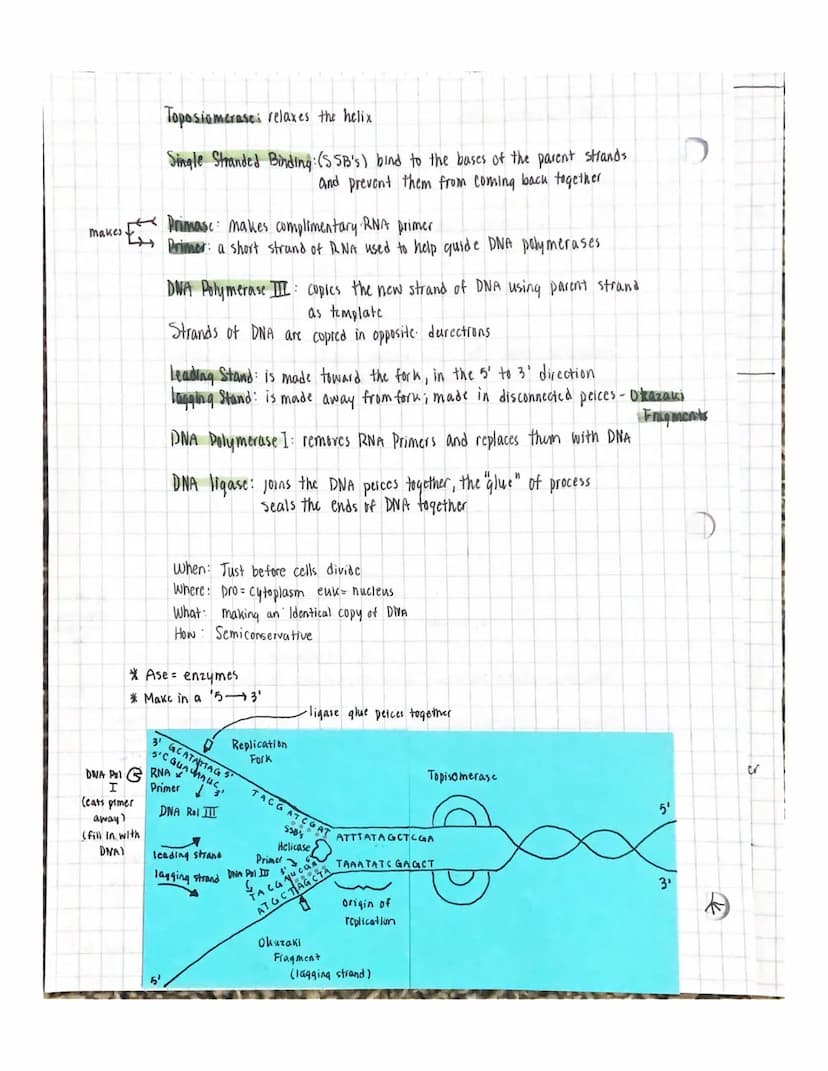 Toposiomerase: relaxes the helix
Single Stranded Binding: (SSB's) bind to the bases of the parent strands
and prevent them from coming back together
makes
Primase: makes complimentary RNA primer
Primer: a short strand of RNA used to help guide DNA polymerases
DNA Polymerase III: copies the new strand of DNA using parent strand
as template
Strands of DNA are copied in opposite directions
Leading Stand: is made toward the fork, in the 5' to 3' direction
lagging Stand: is made away from fork; made in disconnected peices - Okazaki
Fragments
DNA Polymerase I: removes RNA Primers and replaces them with DNA
DNA ligase: joins the DNA peices together, the "glue" of process
seals the ends of DNA together
When: Just before cells divide
Where: pro = cytoplasm euk = nucleus
What: making an Identical copy of DNA
How: Semiconservative
* Ase = enzymes
* Make in a '5 → 3'
ligase glue peices together
3' GCATATTAG 5'
Replication
Fork
RNA
Primer
3'
DNA Pol
I
(eats primer
away)
(fill in with
DNA)
DNA Pol III
TACGATCGAT
SSB's
Topisomerase
5'
ATTTATAGCTCGA
Helicase
leading strand
Primer
TAAATATCGAGCT
lagging strand
DNA Pol III
3'
ATGCTAGCTA
origin of
replication
Okazaki
Fragment
(lagging strand)
5'
er